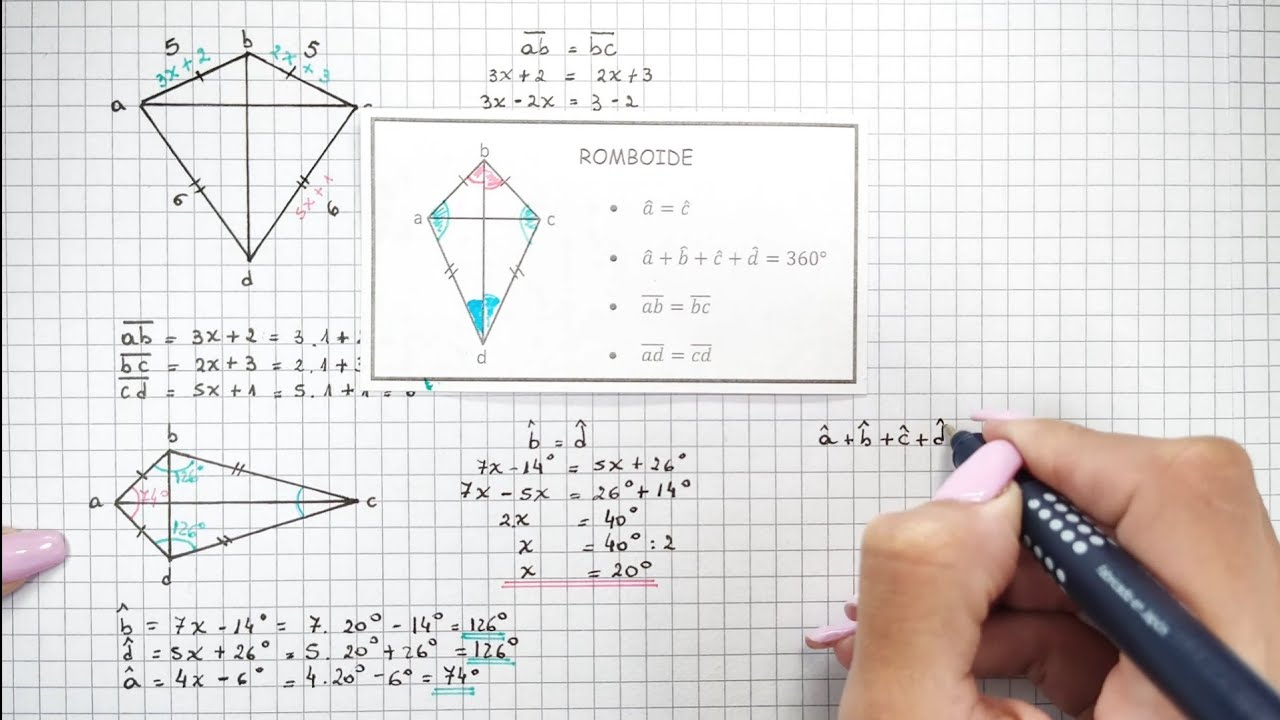 5
b
5
3x + 2
2x + 3
a
6
5x + 1
6
d
ab = bc
3x + 2 = 2x + 3
3x - 2x = 3 - 2
ROMBOIDE
b
a
c
d
• â = ĉ
• â + b̂ + ĉ + d̂ = 360°
• ab = bc
• ad = cd
ab = 3x + 2 = 3.1 +
bc = 2x + 3 = 2.1 +
cd = 5x + 1 = 5.1 + 1 = 6
b
126°
a
74°
c
126°
d
b̂ = d̂
7x - 14° = 5x + 26°
7x - 5x = 26° + 14°
2x = 40°
x = 40° : 2
x = 20°
b̂ = 7x - 14° = 7. 20° - 14° = 126°
d̂ = 5x + 26° = 5. 20° + 26° = 126°
â = 4x - 6° = 4.20° - 6° = 74°
â + b̂ + ĉ + d̂